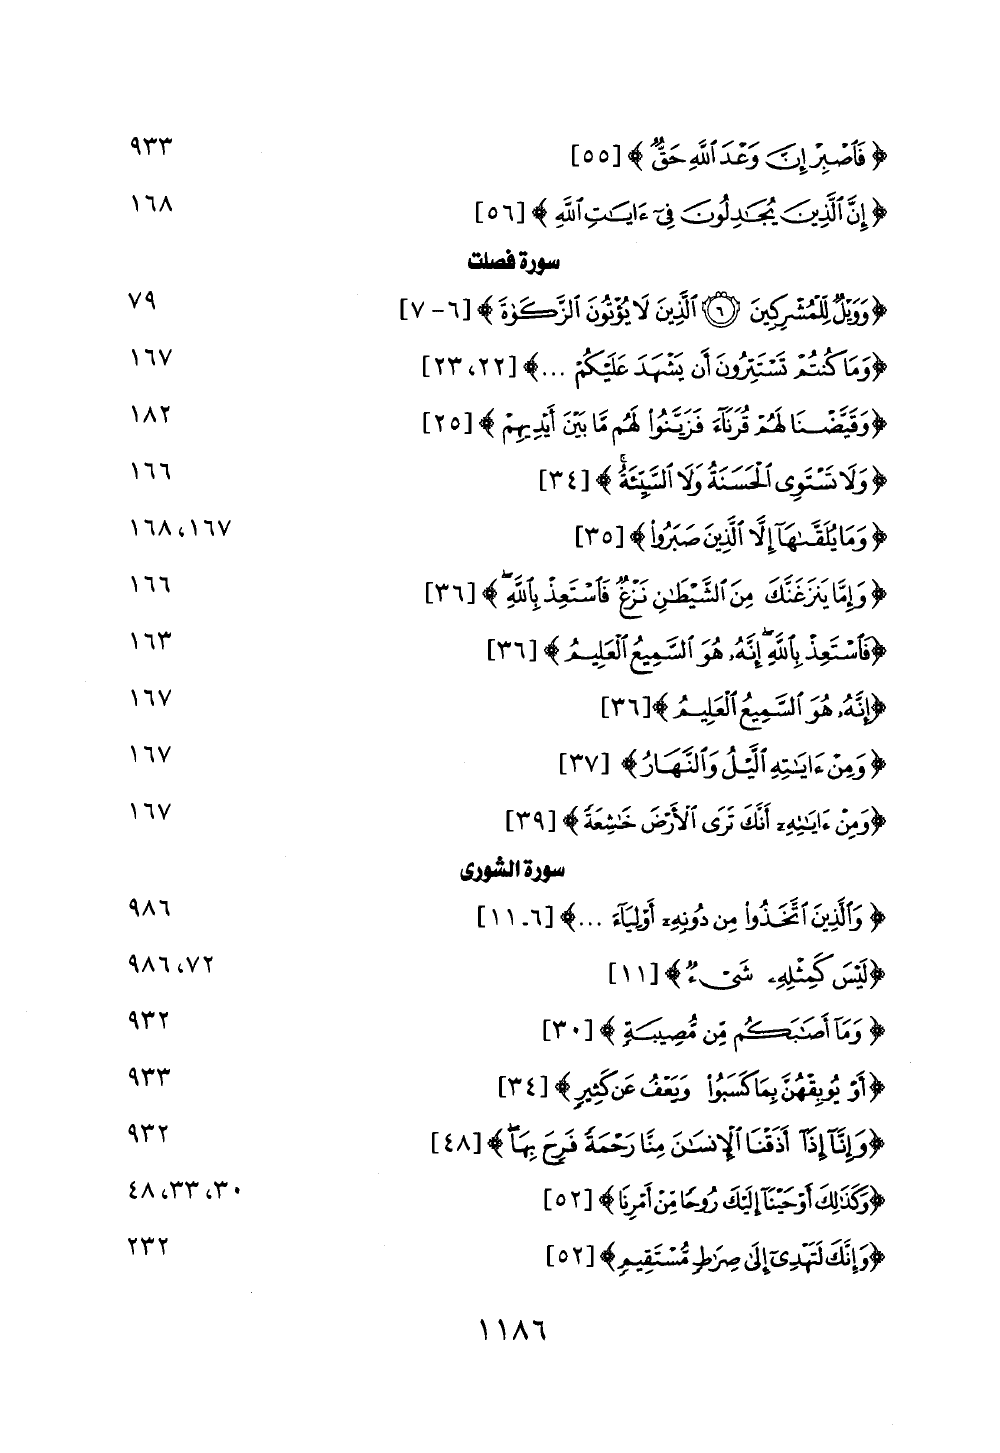 ﴿ فَٱصْبِرْ إِنَّ وَعْدَ ٱللَّهِ حَقٌّ ﴾ [٥٥] ٩٣٣
﴿ إِنَّ ٱلَّذِينَ يُجَٰدِلُونَ فِىٓ ءَايَٰتِ ٱللَّهِ ﴾ [٥٦] ١٦٨
سورة فصلت
﴿ وَوَيْلٌ لِّلْمُشْرِكِينَ ٦ ٱلَّذِينَ لَا يُؤْتُونَ ٱلزَّكَوٰةَ ﴾ [٦- ٧] ٧٩
﴿وَمَا كُنتُمْ تَسْتَتِرُونَ أَن يَشْهَدَ عَلَيْكُمْ ...﴾ [٢٢، ٢٣] ١٦٧
﴿وَقَيَّضْنَا لَهُمْ قُرَنَآءَ فَزَيَّنُوا۟ لَهُم مَّا بَيْنَ أَيْدِيهِمْ ﴾ [٢٥] ١٨٢
﴿ وَلَا تَسْتَوِى ٱلْحَسَنَةُ وَلَا ٱلسَّيِّئَةُ ۚ ﴾ [٣٤] ١٦٦
﴿ وَمَا يُلَقَّىٰهَآ إِلَّا ٱلَّذِينَ صَبَرُوا۟ ﴾ [٣٥] ١٦٧، ١٦٨
﴿ وَإِمَّا يَنزَغَنَّكَ مِنَ ٱلشَّيْطَٰنِ نَزْغٌ فَٱسْتَعِذْ بِٱللَّهِ ۖ ﴾ [٣٦] ١٦٦
﴿فَٱسْتَعِذْ بِٱللَّهِ ۖ إِنَّهُۥ هُوَ ٱلسَّمِيعُ ٱلْعَلِيمُ ﴾ [٣٦] ١٦٣
﴿إِنَّهُۥ هُوَ ٱلسَّمِيعُ ٱلْعَلِيمُ ﴾[٣٦] ١٦٧
﴿ وَمِنْ ءَايَٰتِهِ ٱلَّيْلُ وَٱلنَّهَارُ ﴾ [٣٧] ١٦٧
﴿وَمِنْ ءَايَٰتِهِۦٓ أَنَّكَ تَرَى ٱلْأَرْضَ خَٰشِعَةً ﴾ [٣٩] ١٦٧
سورة الشورى
﴿ وَٱلَّذِينَ ٱتَّخَذُوا۟ مِن دُونِهِۦٓ أَوْلِيَآءَ ...﴾ [٦ـ ١١] ٩٨٦
﴿لَيْسَ كَمِثْلِهِۦ شَىْءٌ ﴾ [١١] ٧٢، ٩٨٦
﴿ وَمَآ أَصَٰبَكُم مِّن مُّصِيبَةٍ ﴾ [٣٠] ٩٣٢
﴿أَوْ يُوبِقْهُنَّ بِمَا كَسَبُوا۟ وَيَعْفُ عَن كَثِيرٍ ﴾ [٣٤] ٩٣٣
﴿وَإِنَّآ إِذَآ أَذَقْنَا ٱلْإِنسَٰنَ مِنَّا رَحْمَةً فَرِحَ بِهَا ۖ ﴾ [٤٨] ٩٣٢
﴿وَكَذَٰلِكَ أَوْحَيْنَآ إِلَيْكَ رُوحًا مِّنْ أَمْرِنَا ﴾ [٥٢] ٣٠، ٣٣، ٤٨
﴿وَإِنَّكَ لَتَهْدِىٓ إِلَىٰ صِرَٰطٍ مُّسْتَقِيمٍ ﴾ [٥٢] ٢٣٢
١١٨٦